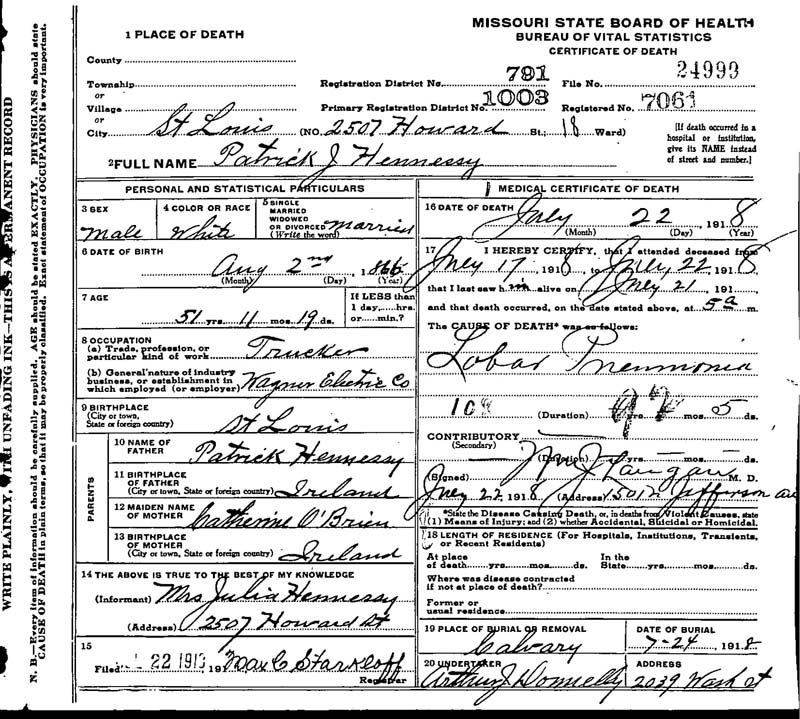 MISSOURI STATE BOARD OF HEALTH
BUREAU OF VITAL STATISTICS
CERTIFICATE OF DEATH
1 PLACE OF DEATH
County
Township
or
Village
or
City St Louis (NO. 2507 Howard St.; 18 Ward)
Registration District No. 791 File No. 24999
Primary Registration District No. 1003 Registered No. 7061
[If death occurred in a
hospital or institution,
give its NAME instead
of street and number.]
2 FULL NAME Patrick J Hennessy
PERSONAL AND STATISTICAL PARTICULARS
3 SEX
Male
4 COLOR OR RACE
White
5 SINGLE
MARRIED
WIDOWED
OR DIVORCED
(Write the word)
Married
6 DATE OF BIRTH
Aug 2nd, 1866
(Month) (Day) (Year)
7 AGE
51 yrs. 11 mos. 19 ds.
If LESS than
1 day,.....hrs.
or.....min.?
8 OCCUPATION
(a) Trade, profession, or
particular kind of work Trucker
(b) General nature of industry
business, or establishment in
which employed (or employer) Wagner Electric Co
9 BIRTHPLACE
(City or town,
State or foreign country) St Louis
PARENTS
10 NAME OF
FATHER Patrick Hennessy
11 BIRTHPLACE
OF FATHER
(City or town, State or foreign country) Ireland
12 MAIDEN NAME
OF MOTHER Catherine O'Brien
13 BIRTHPLACE
OF MOTHER
(City or town, State or foreign country) Ireland
14 THE ABOVE IS TRUE TO THE BEST OF MY KNOWLEDGE
(Informant) Mrs Julia Hennessy
(Address) 2507 Howard St
15
Filed 22 191 Max C Starkloff
Registrar
MEDICAL CERTIFICATE OF DEATH
16 DATE OF DEATH July 22, 1918
(Month) (Day) (Year)
17 I HEREBY CERTIFY, that I attended deceased from
July 17, 1918, to July 22, 1918
that I last saw him alive on July 21, 191
and that death occurred, on the date stated above, at 5 a m.
The CAUSE OF DEATH* was as follows:
Lobar Pneumonia
(Duration) yrs. mos. 5 ds.
CONTRIBUTORY
(Secondary)
(Duration) yrs. mos. ds.
(Signed) M. D.
July 22, 1918 (Address) Jefferson
*State the Disease Causing Death, or, in deaths from Violent Causes, state
(1) Means of Injury; and (2) whether Accidental, Suicidal or Homicidal.
18 LENGTH OF RESIDENCE (For Hospitals, Institutions, Transients,
or Recent Residents)
At place
of death.....yrs.....mos.....ds.
In the
State.....yrs.....mos.....ds.
Where was disease contracted
if not at place of death?
Former or
usual residence
19 PLACE OF BURIAL OR REMOVAL
Calvary
DATE OF BURIAL
7-24, 1918
20 UNDERTAKER
Arthur J Donnelly
ADDRESS
2039 Wash st
WRITE PLAINLY, WITH UNFADING INK—THIS IS A PERMANENT RECORD
N. B.—Every item of information should be carefully supplied. AGE should be stated EXACTLY. PHYSICIANS should state
CAUSE OF DEATH in plain terms, so that it may be properly classified. Exact statement of OCCUPATION is very important.